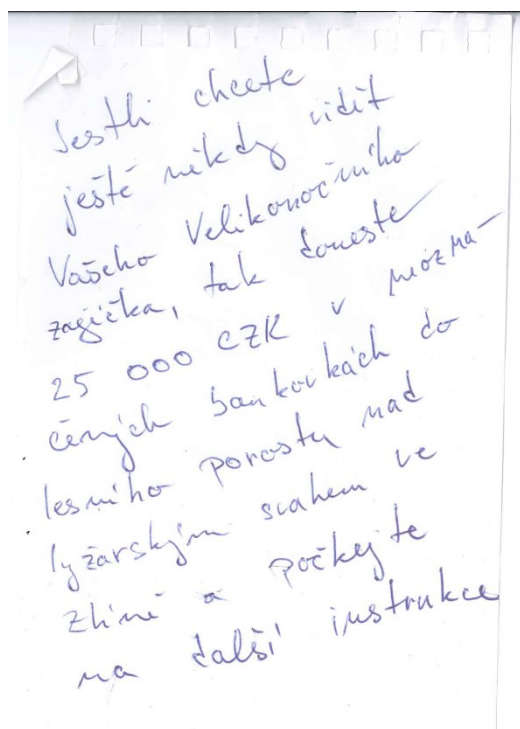 Jestli chcete
ještě někdy vidět
Vašeho Velikonočního
zajíčka, tak doneste
25 000 CZK v neozna-
čených bankovkách do
lesního porostu nad
lyžarským svahem ve
Zlíně a počkejte
na další instrukce